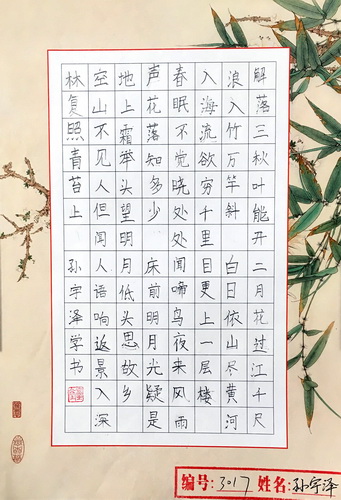 解落三秋叶能开二月花过江千尺
浪入竹万竿斜 白日依山尽黄河
入海流欲穷千里目更上一层楼
春眠不觉晓处处闻啼鸟夜来风雨
声花落知多少 床前明月光疑是
地上霜举头望明月低头思故乡
空山不见人但闻人语响返景入深
林复照青苔上 孙宇泽学书
编号:3017 姓名:孙宇泽